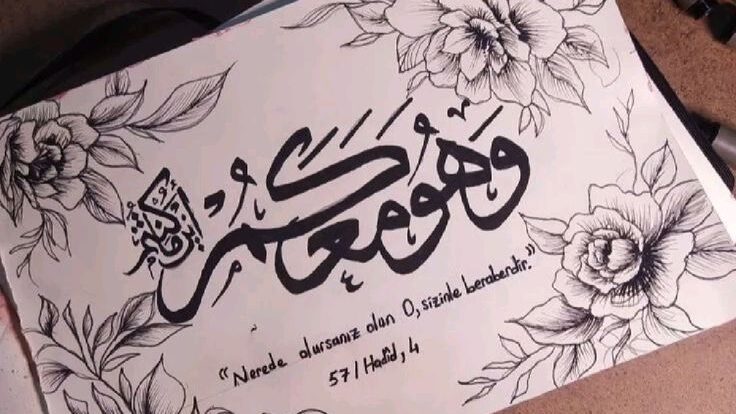 وَهُوَ مَعَكُمْ
أَيْنَ مَا كُنْتُمْ
“Nerede olursanız olun O, sizinle beraberdir.”
57 / Hadîd, 4